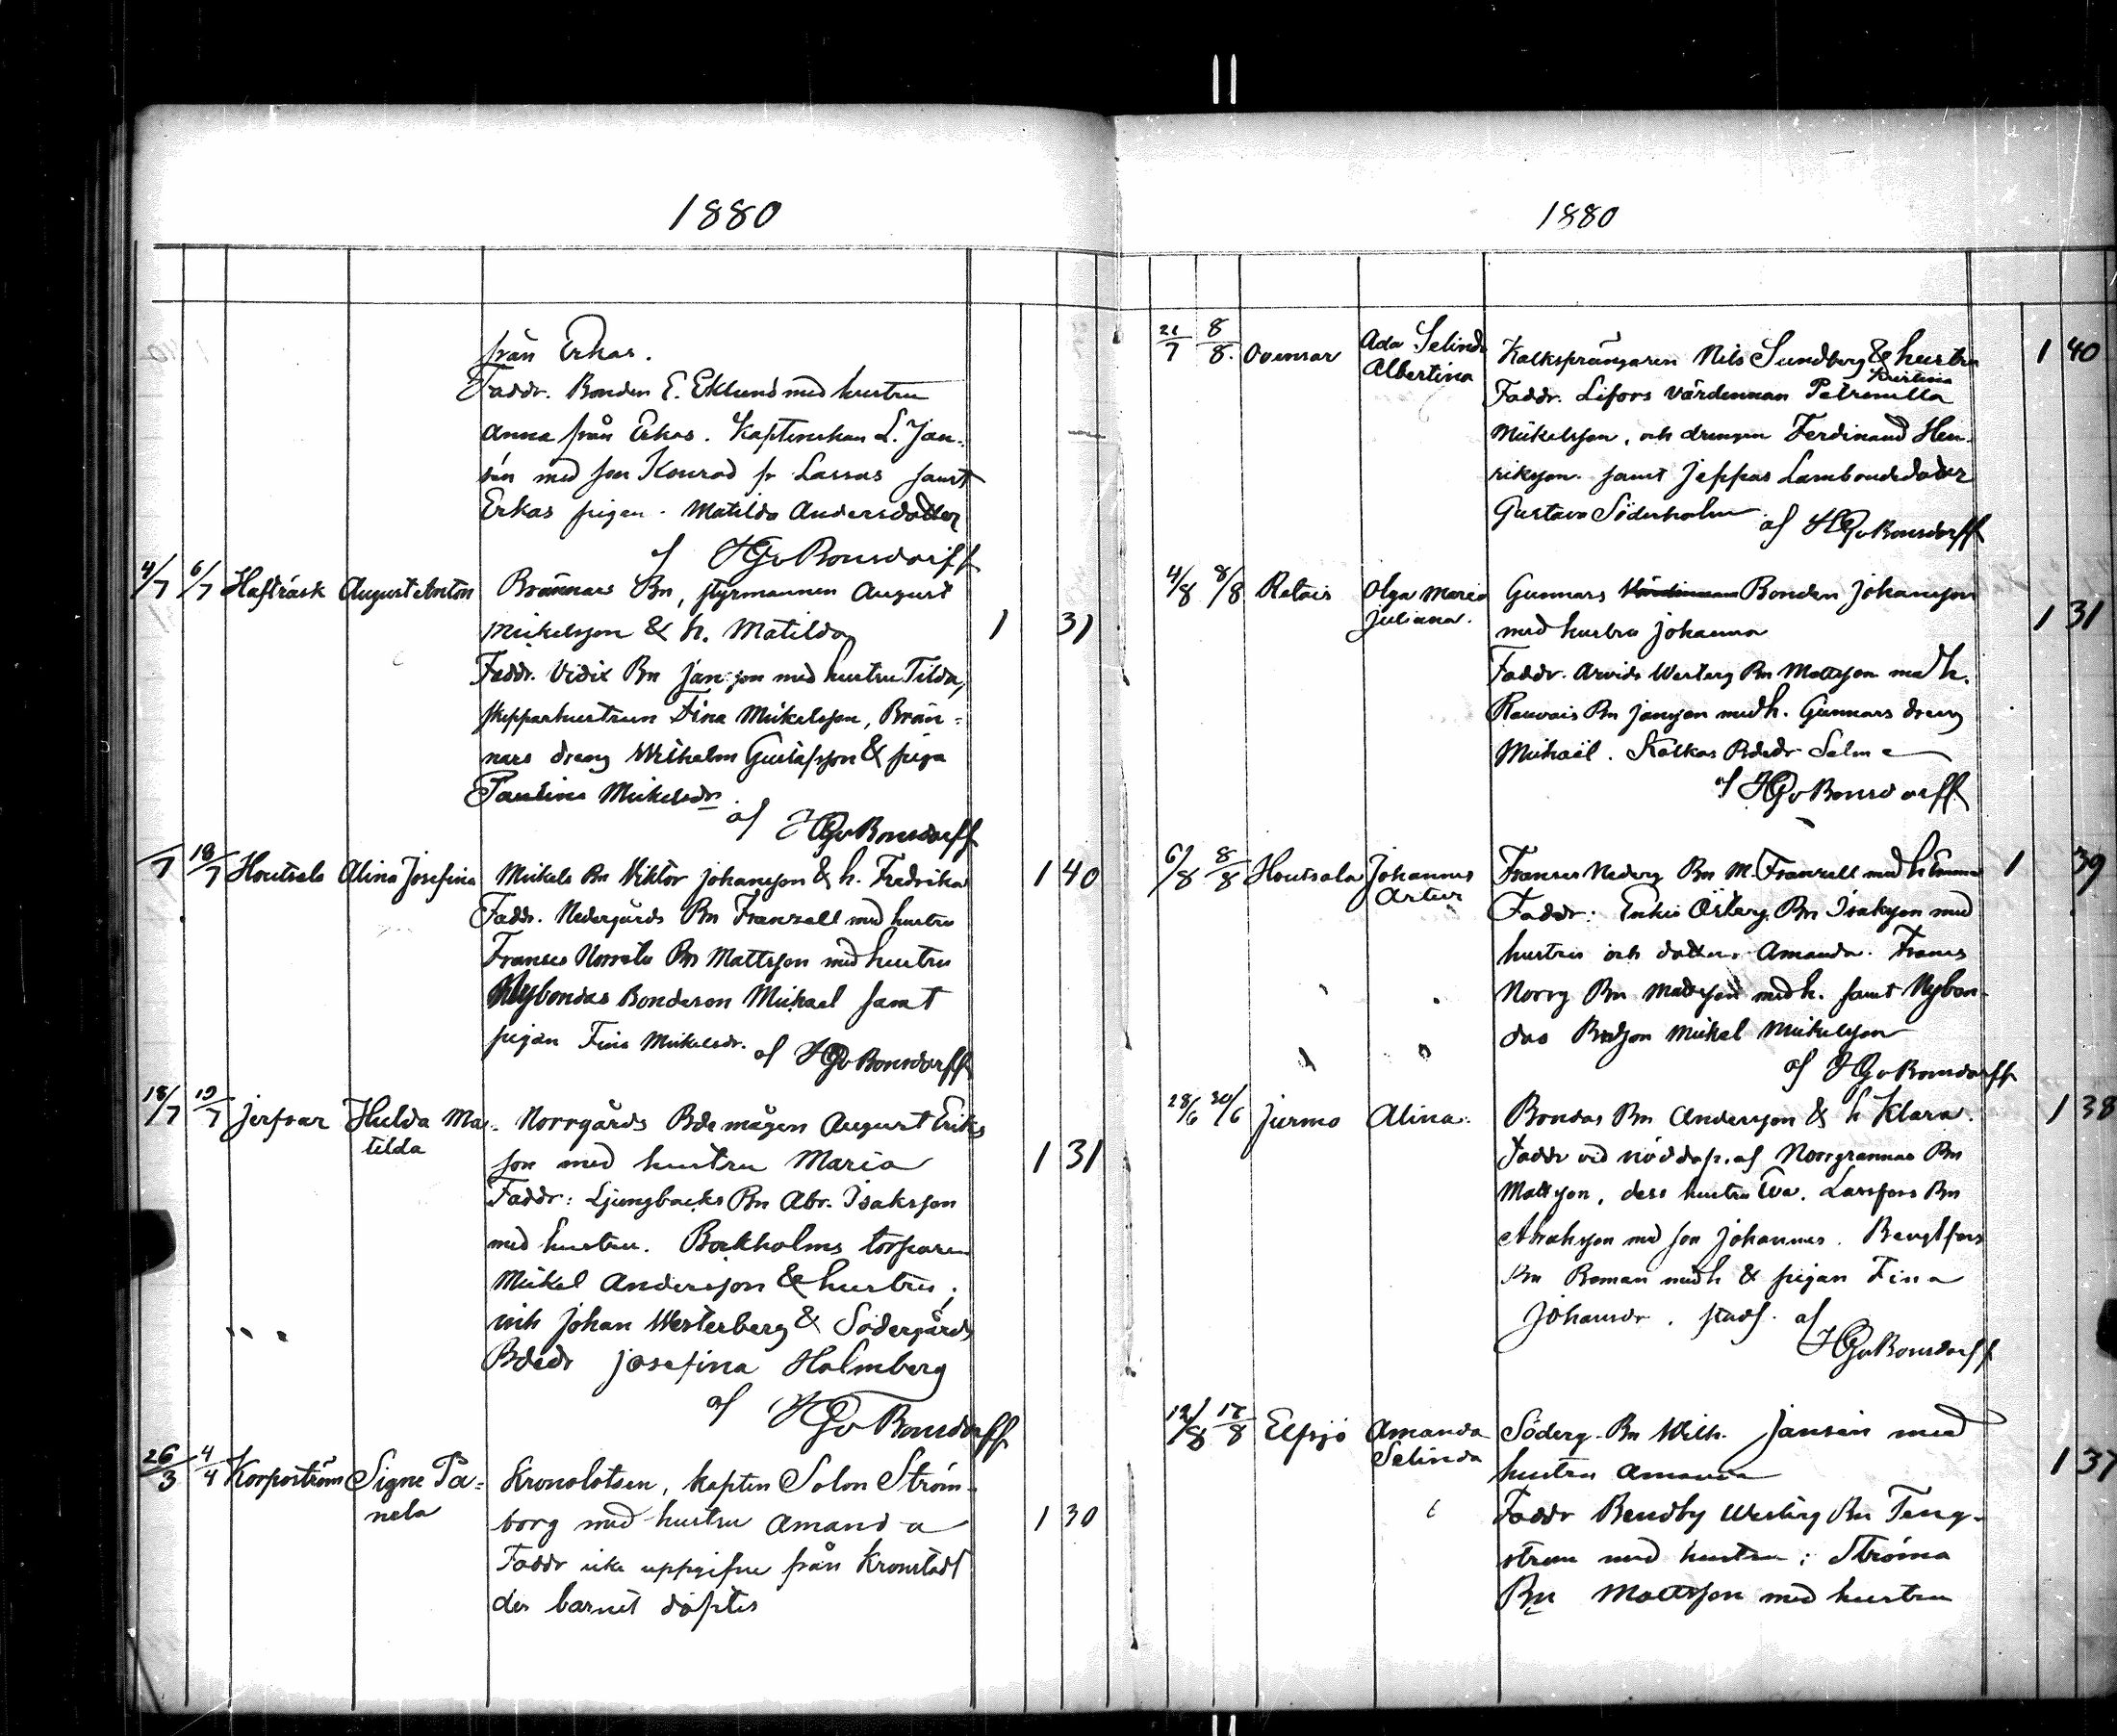 1880
från Erkas.
Faddr. Bonden E. Eklund med hustru
Anna från Erkas. Kaptenskan L. Jan-
sén med son Konrad fr Lassas samt
Erkas pigan. Matilda Andersdotter
af HGvBonsdorff
4/7 6/7 Hafträsk August Anton Brännars Bn, styrmannen August
Mickelsson & h. Matilda 1 31
Faddr. Vidix Bn Jansson med hustru Tilda,
skepparhustrun Fina Mickelsson, Brän-
nars dreng Wilhelm Gustafsson & piga
Paulina Mickelsdr.
af HGvBonsdorff
/7 18/7 Houtsala Alina Josefina Mickels Bn Viktor Johansson & h. Fredrika 1 40
Faddr. Nedergårds Bn Franzell med hustru
Franses Bn Mattsson med hustru
Nybondas Bondeson Michael samt
pigan Fina Mickelsdr. af HGvBonsdorff
18/7 19/7 Jerfsar Hulda Ma- Norrgårds Bde mågen August Eriks
tilda son med hustru Maria 1 31
Faddr: Ljungbacks Bn Abr. Isaksson
med hustru. Bockholms torparen
Mickel Andersson & hustru;
inh Johan Westerberg & Södergårds
Bdedr Josefina Holmberg
af HGvBonsdorff
26/3 4/4 Korpoström Signe Pa- Kronolotsen, kapten Solon Ström-
nela borg med hustru Amanda 1 30
Faddr icke uppgifne från Kronstadt
der barnet döptes
1880
21/7 8/8. Ovensor Ada Selinda Kalksprängaren Nils Sundberg & hustru 1 40
Albertina Kristina
Faddr. Lifors värdinnan Petronella
Mickelsson, och drengen Ferdinand Hen-
riksson. samt Jeppas Lambondedotter
Gustava Söderholm. af HGvBonsdorff
4/8 8/8 Retais Olga Maria Gunnars Bonden Johansson
Juliana. med hustru Johanna 1 31
Faddr. Arvids Westerg Bn Mattsson med h.
Rauvais Bn Jansson med h. Gunnars dreng
Michaël. Kälkas Bdedr Selma
af HGvBonsdorff
6/8 8/8 Houtsala Johannes Franses Nederg Bn M. Franzell med h Emma 1 39
Artur Faddr: Enkis Österg. Bn Isaksson med
hustru och dotter Amanda. Frans
Norrg Bn Mattsson med h. samt Nybon-
das Bndson Mickel Mickelsson
af HGvBonsdorff
28/6 30/6 Jurmo Alina. Bondas Bn Andersson & h Klara. 1 38
Faddr vid nöddop. af Norrgrannas Bn
Mattsson, dess hustru Eva. Larsfors Bn
Abrahsson med son Johannes. Bengtfors
Bn Boman med h & pigan Fina
Johansdr. stadf. af
HGvBonsdorff
12/8 17/8 Elfsjö Amanda Söderg. Bn Wilh. Jansén med
Selinda hustru Amanda 1 37
Faddr Bendby Westerg Bn Teng-
ström med hustru; Ströma
Bn Mattsson med hustru